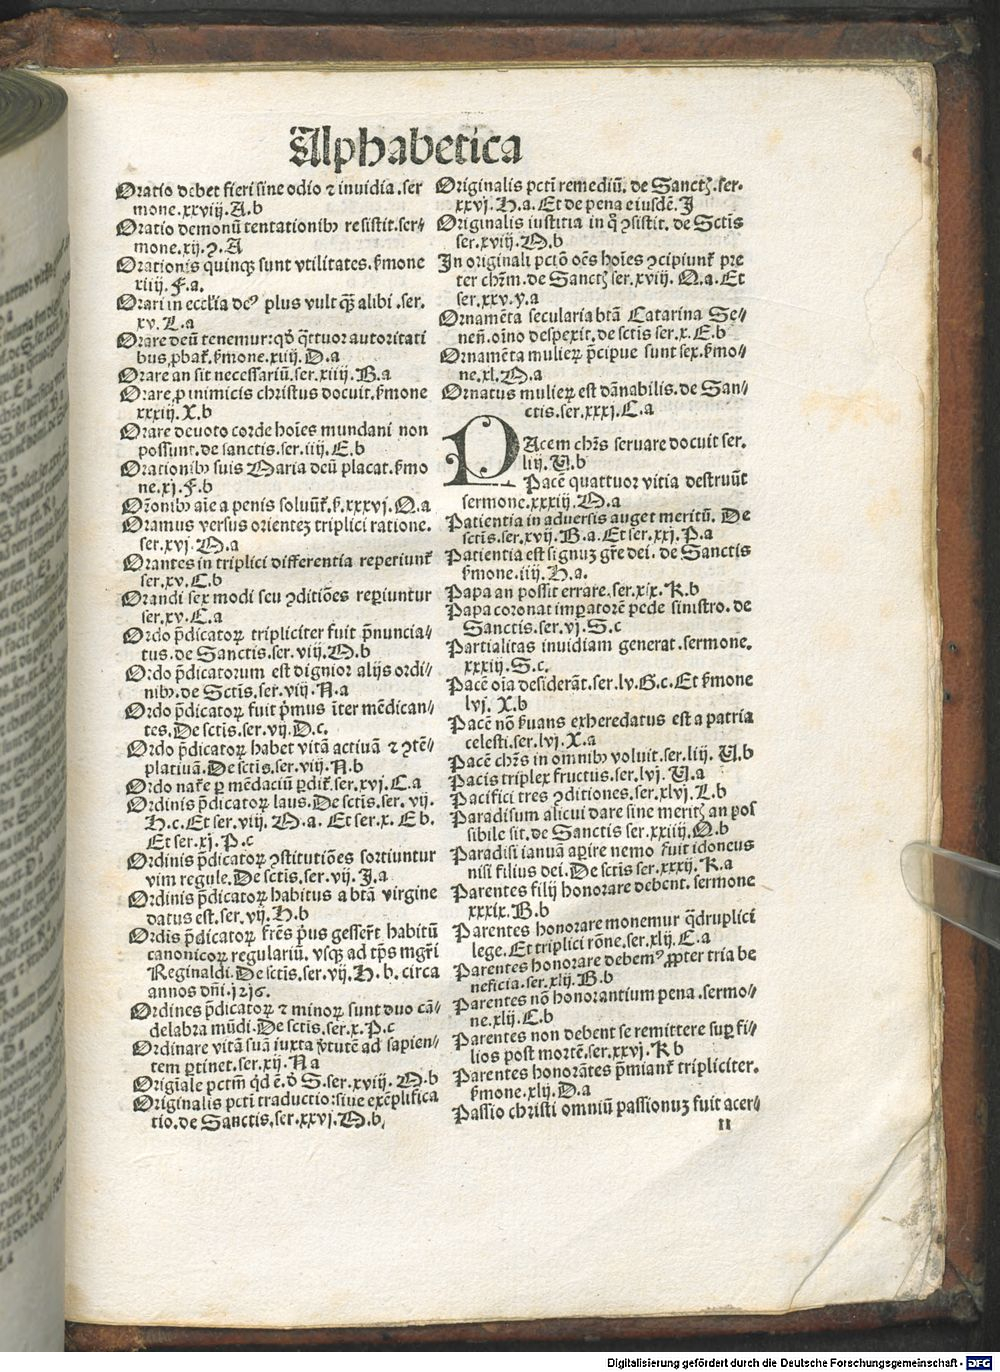 Alphabetica
Oratio debet fieri sine odio ⁊ inuidia .ser
mone.xxviij.A.b
Oratio demonũ tentationibꝰ resistit.ser-
mone.xij.ꝛ.A
Orationis quinqꝫ sunt vtilitates. ẜmone
xiiij.F.a.
Orari in eccl'ia deꝰ plus vult qꝫ alibi .ser.
xv.L.a
Orare deũ tenemur:qđ q̃ttuor autoritati
bus ꝓbat᷒. ẜmone.xiiij.D.a
Orare an sit necessariũ.ser.xiiij.B.a
Orare ꝓ inimicis christus docuit. ẜmone
xxxiij.X.b
Orare deuoto corde hoĩes mundani non
possunt.de sanctis.ser.iiij.E.b
Orationibꝰ suis Maria deũ placat. ẜmo
ne.xj.F.b
Orõnibꝰ aĩe a penis soluũt᷒. ẜ.xxxvj.O.a
Oramus versus orientez triplici ratione.
ser.xvj.M.a
Orantes in triplici differentia reperiunt᷒
ser.xv.C.b
Orandi sex modi seu ꝯditiões reꝑiuntur
ser.xv.C.a
Ordo p̃dicatoꝝ tripliciter fuit p̃nuncia-
tus.de Sanctis.ser.viij.M.b
Ordo p̃dicatorum est dignior alijs ordi-
nibꝰ.de Sctĩs.ser.viij.N.a
Ordo p̃dicatoꝝ fuit p̃mus ĩter mẽdican-
tes.De sctis.ser.vij.D.c.
Ordo p̃dicatoꝝ habet vitã actiuã ⁊ ꝯtẽ-
platiuã.De sctis.ser.viij.N.b
Ordo nat᷒e ꝑ mẽdaciũ ꝑdit᷒.ser.xvj.C.a
Ordinis p̃dicatoꝝ laus.De sctis.ser. vij.
H.c.Et ser.viij.M.a. Et ser.x. E b.
Et ser.xj.P.c
Ordinis p̃dicatoꝝ ꝯstitutiões sortiuntur
vim regule.De sctis.ser.vij.J.a
Ordinis p̃dicatoꝝ habitus a btã virgine
datus est.ser.vij.H.b
Ordĩs p̃dicatoꝝ fr̃es p̃us gesser̃t habitũ
canonicoꝝ regulariũ. vsqꝫ ad tp̃s mgr̃i
Reginaldi.De sctis.ser.vij.H.b. circa
annos dñi.1216.
Ordines p̃dicatoꝝ ⁊ minoꝝ sunt duo cã-
delabra mũdi.De sctis.ser.x.P.c
Ordinare vitã suã iuxta v̓tutẽ ad sapien-
tem ꝑtinet.ser.xij.N a
Origĩale pctm̃ qđ ẽ. ỏ S.ser.xviij. M.b
Originalis pcti traductio:siue exẽplifica
tio.de Sanctis.ser.xxvj.M.b,
Originalis pctĩ remediũ. de Sanctꝭ.ser.
xxvj.H.a.Et de pena eiusdẽ.J
Originalis iustitia in q̃ ꝯsistit. de Sctĩs
ser.xviij.M.b
In originali pctõ oẽs hoĩes ꝯcipiunt᷒ pre
ter chr̃m.de Sanctꝭ ser.xviij. O.a.Et
ser.xxv.y.a
Ornamẽta secularia btã Catarina Se-
neñ.oĩno despexit.de sctis ser.x.E.b
Ornamẽta mulieꝝ p̃cipue sunt sex. ẜmo-
ne.xl.M.a
Ornatus mulieꝝ est dãnabilis.de San-
ctis.ser.xxxj.C.a
PAcem chr̃s seruare docuit ser.
liij.V.b
Pacẽ quattuor vitia destruũt
sermone.xxxiij.M.a
Patientia in aduersis auget meritũ. De
sctis.ser.xvij.B.a.Et ser.xxj.P.a
Patientia est signuz gr̃e dei.de Sanctis
ẜmone.iiij.H.a.
Papa an possit errare.ser.xix.K.b
Papa coronat imꝑatorẽ pede sinistro. de
Sanctis.ser.vj.S.c
Partialitas inuidiam generat .sermone.
xxxiij.S.c.
Pacẽ oĩa desiderãt.ser.lv.G.c.Et ẜmone
lvj. X.b
Pacẽ nõ ẜuans exheredatus est a patria
celesti.ser.lvj.X.a
Pacẽ chr̃s in omnibꝰ voluit.ser.liij. V.b
Pacis triplex fructus.ser.lvj.V.a
Pacifici tres ꝯditiones.ser.xlvj.L.b
Paradisum alicui dare sine meritꝭ an pos
sibile sit.de Sanctis ser.xxiiij.O.b
Paradisi ianuã aꝑire nemo fuit idoneus
nisi filius dei.De sctis ser.xxxij.K.a
Parentes filij honorare debent. sermone
xxxix.B.b
Parentes honorare monemur q̃druplici
lege.Et triplici rõne.ser.xlij.C.a
Parentes honorare debemꝰ ꝓpter tria be
neficia.ser.xlij.B.b
Parentes nõ honorantium pena .sermo-
ne.xlij.C.b
Parentes non debent se remittere suꝑ fi-
lios post mortẽ.ser.xxvj.K b
Parentes honorãtes p̃miant᷒ tripliciter.
ẜmone.xlij.D.a
Passio christi omniũ passionuz fuit acer-
II
Digitalisierung gefördert durch die Deutsche Forschungsgemeinschaft - DFG